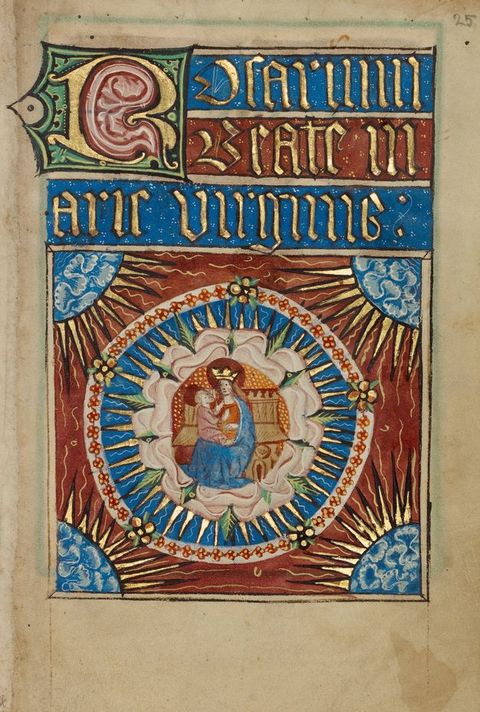 25
Rosarium
Beate m
arie virginis :